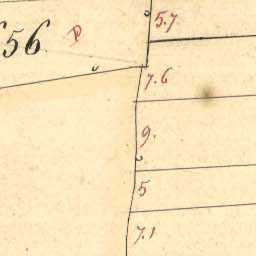 5.7
56
7.6
9.
5
7.1